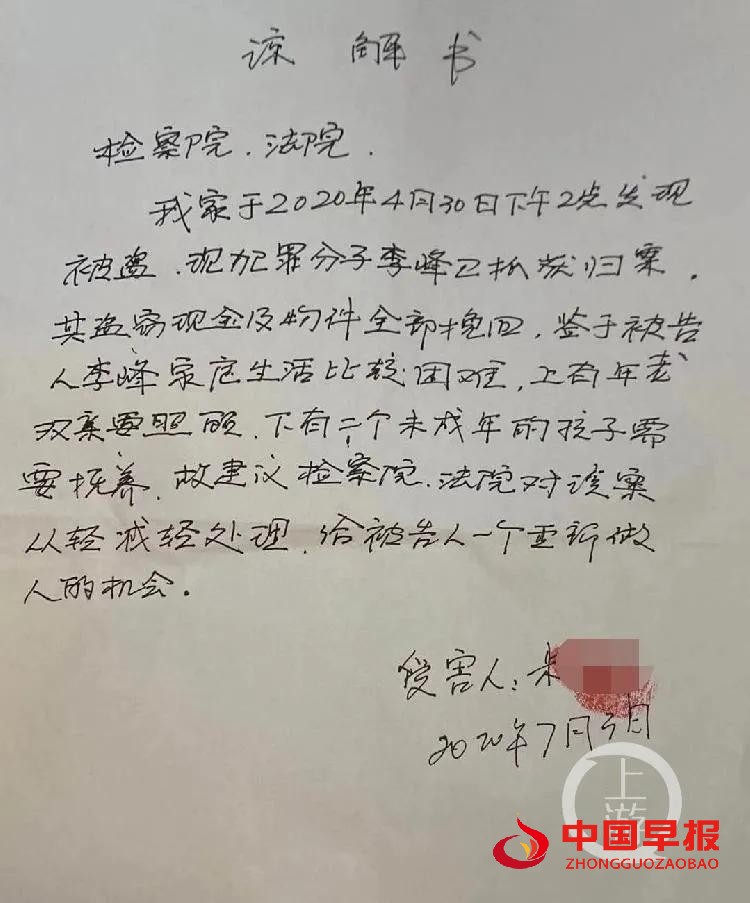 谅解书
检察院、法院、
我家于2020年4月30日下午2点发现
被盗、现犯罪分子李峰已抓获归案，
其盗窃现金及物件全部挽回，鉴于被告
人李峰家庭生活比较困难，上有年老
双亲要照顾、下有二个未成年的孩子需
要抚养，故建议检察院、法院对该案
从轻减轻处理，给被告人一个重新做
人的机会。
受害人：朱
2020年7月3日
上游
中国早报
ZHONGGUOZAOBAO